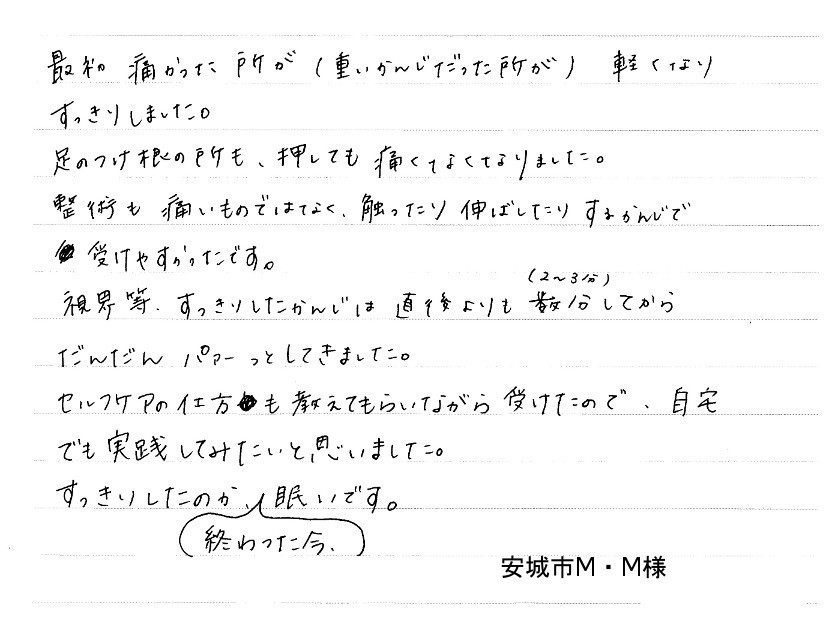 最初 痛かった所が(重いかんじだった所が) 軽くなり
すっきりしました。
足のつけ根の所も、押しても痛くなくなりました。
整術も痛いものではなく、触ったり伸ばしたりするかんじで
受けやすかったです。
(2〜3分)
視界等、すっきりしたかんじは直後よりも数分してから
だんだん パァーっとしてきました。
セルフケアの仕方も教えてもらいながら受けたので、自宅
でも実践してみたいと思いました。
すっきりしたのか、眠いです。
終わった今、
安城市M・M様